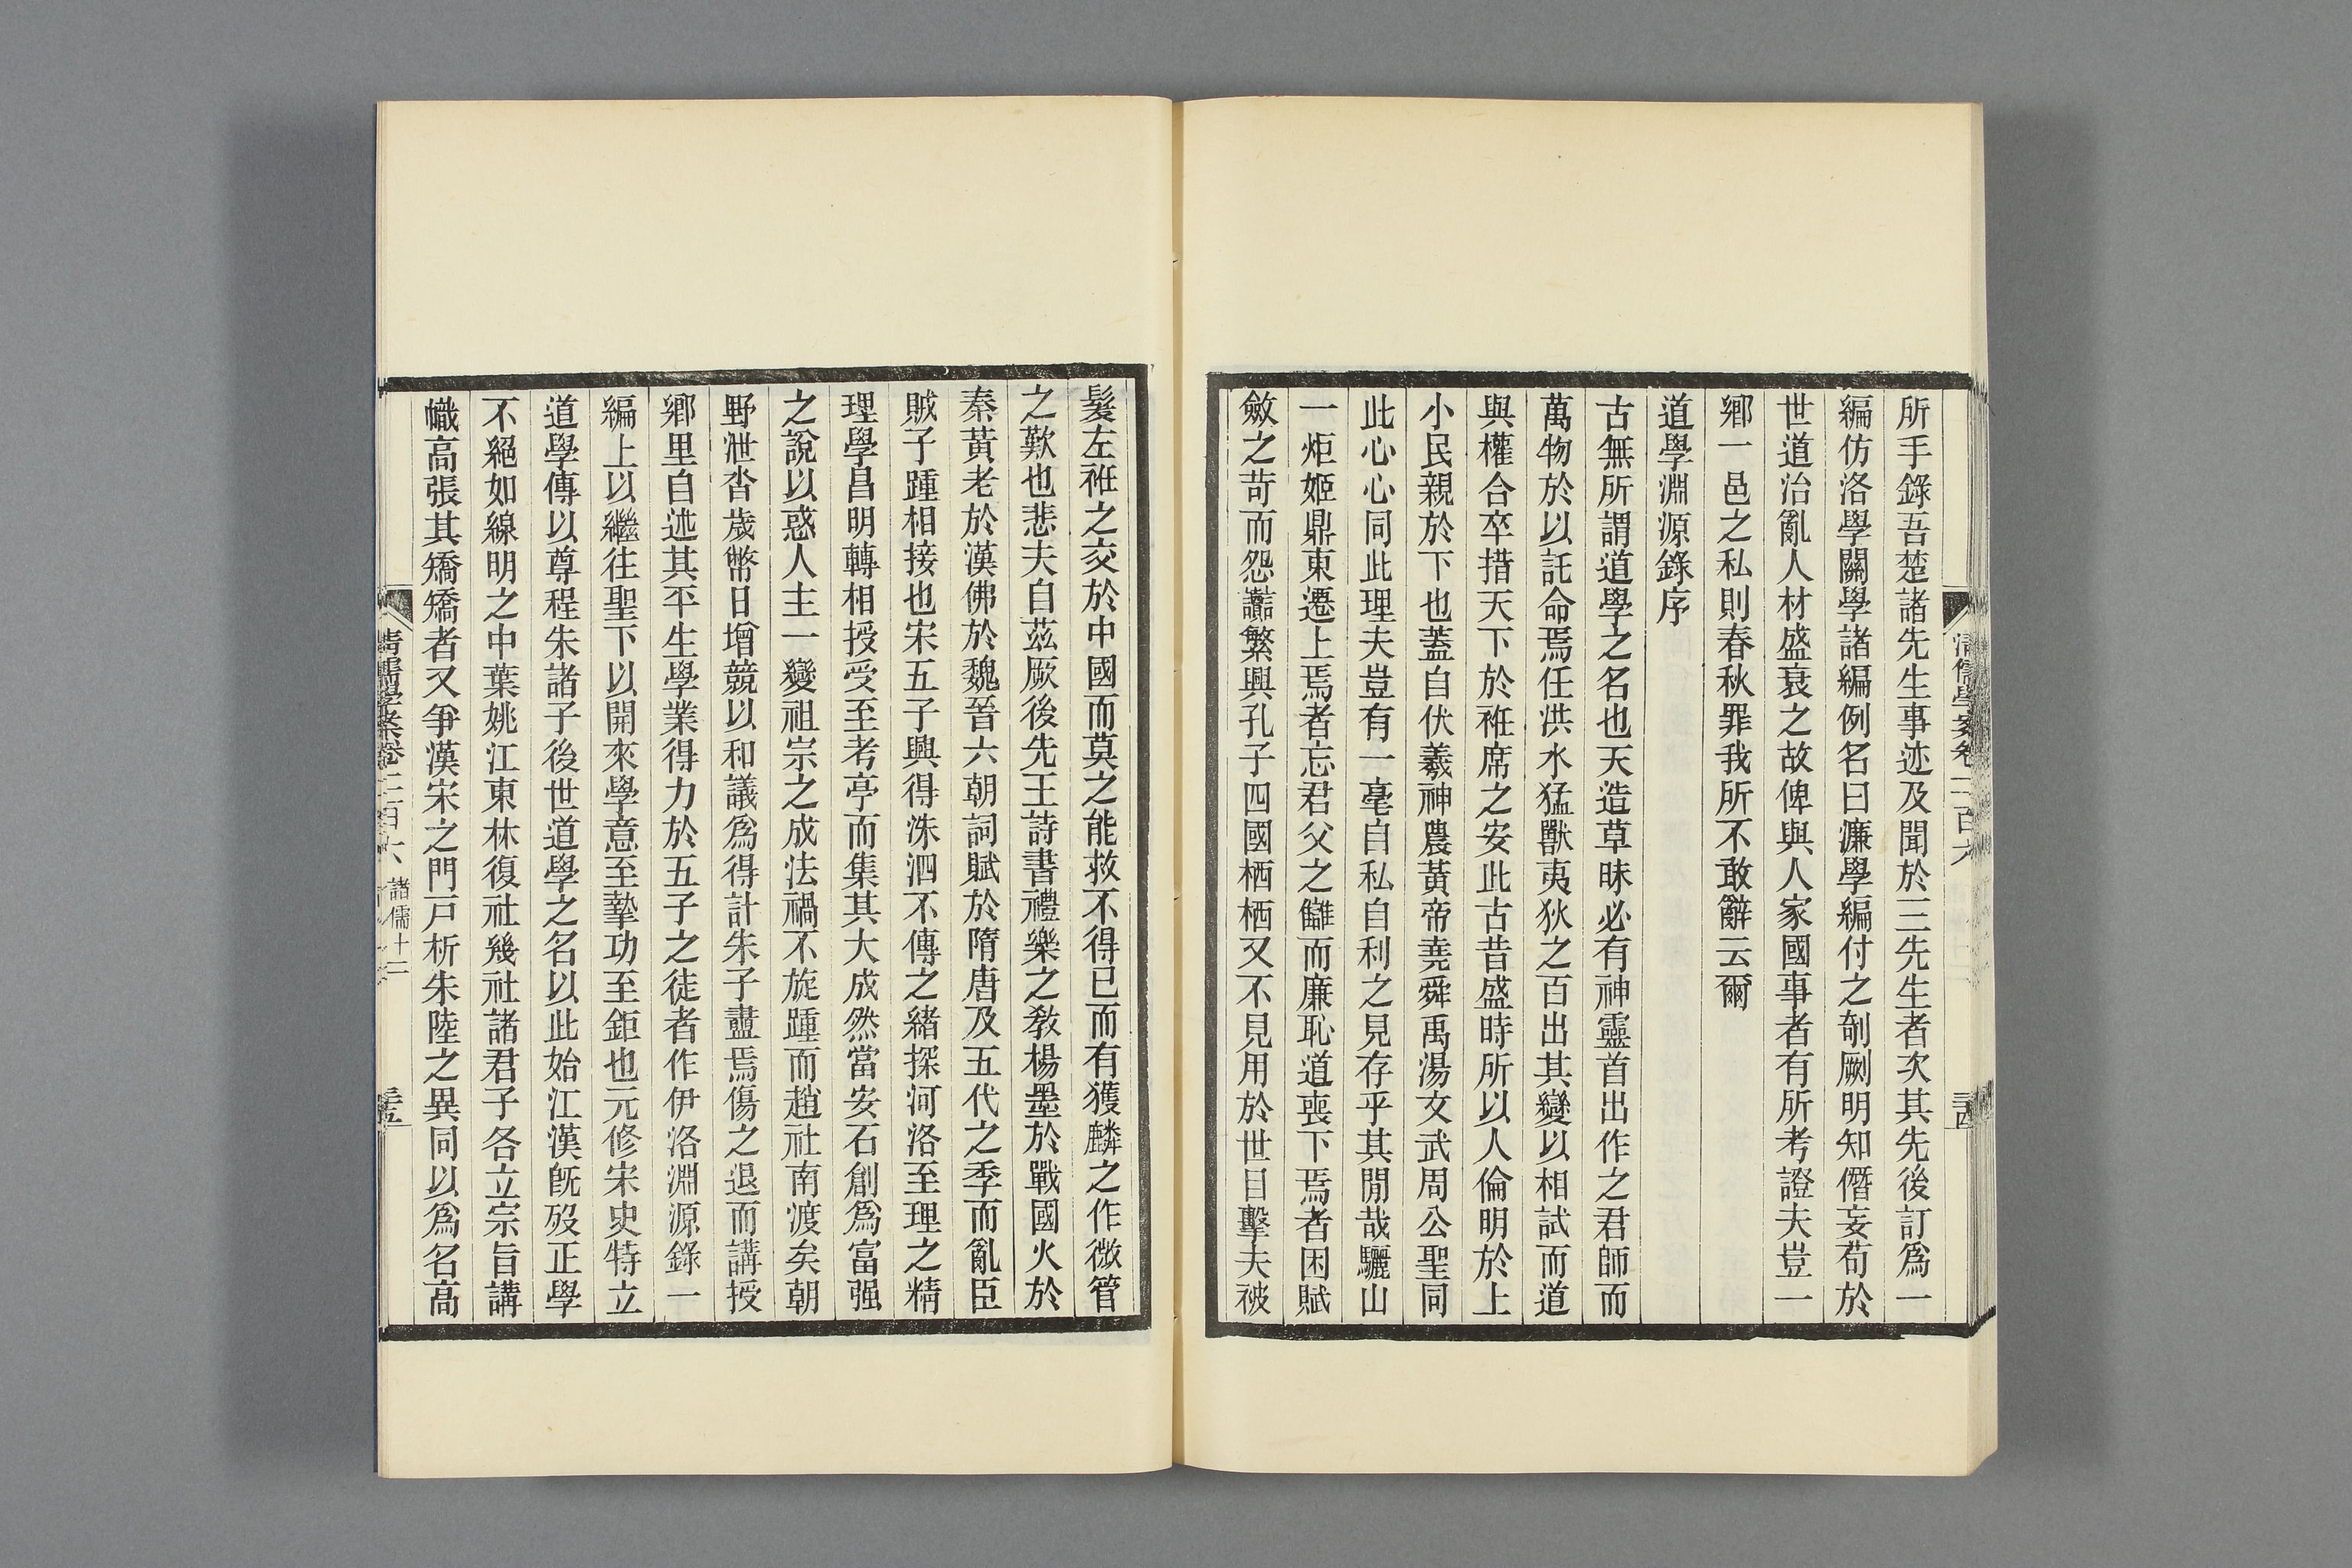 清儒學案卷二百六
三十四
所手錄吾楚諸先生事迹及聞於三先生者次其先後訂爲一
編仿洛學關學諸編例名曰濂學編付之剞劂明知僭妄苟於
世道治亂人材盛衰之故俾與人家國事者有所考證夫豈一
鄉一邑之私則春秋罪我所不敢辭云爾
道學淵源錄序
古無所謂道學之名也天造草昧必有神靈首出作之君師而
萬物於以託命焉任洪水猛獸夷狄之百出其變以相試而道
與權合卒措天下於袵席之安此古昔盛時所以人倫明於上
小民親於下也蓋自伏羲神農黃帝堯舜禹湯文武周公聖同
此心心同此理夫豈有一毫自私自利之見存乎其閒哉驪山
一炬姬鼎東遷上焉者忘君父之讎而廉恥道喪下焉者困賦
斂之苛而怨讟繁興孔子四國栖栖又不見用於世目擊夫被
髮左袵之交於中國而莫之能救不得已而有獲麟之作微管
之歎也悲夫自茲厥後先王詩書禮樂之敎楊墨於戰國火於
秦黃老於漢佛於魏晉六朝詞賦於隋唐及五代之季而亂臣
賊子踵相接也宋五子興得洙泗不傳之緒探河洛至理之精
理學昌明轉相授受至考亭而集其大成然當安石創爲富强
之說以惑人主一變祖宗之成法禍不旋踵而趙社南渡矣朝
野泄沓歲幣日增競以和議爲得計朱子藎焉傷之退而講授
鄉里自述其平生學業得力於五子之徒者作伊洛淵源錄一
編上以繼往聖下以開來學意至摯功至鉅也元修宋史特立
道學傳以尊程朱諸子後世道學之名以此始江漢旣歿正學
不絕如線明之中葉姚江東林復社幾社諸君子各立宗旨講
幟高張其矯矯者又爭漢宋之門戸析朱陸之異同以爲名高
清儒學案卷二百六 諸儒十二
三十五